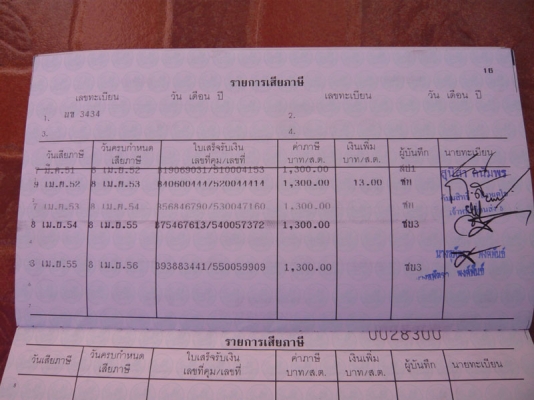 16
รายการเสียภาษี
เลขทะเบียน วัน เดือน ปี เลขทะเบียน วัน เดือน ปี
1. มข 3434 2.
3. 4.
วันเสียภาษี วันครบกำหนดเสียภาษี ใบเสร็จรับเงิน เลขที่คุม/เลขที่ ค่าภาษี บาท/ส.ต. เงินเพิ่ม บาท/ส.ต. ผู้บันทึก นายทะเบียน
8 เม.ย.52 819069031/510004153 1,300.00
9 เม.ย.52 8 เม.ย.53 840600444/520044414 1,300.00 13.00 ชย
เม.ย.53 8 เม.ย.54 856846790/530047160 1,300.00 ชย
8 เม.ย.54 8 เม.ย.55 875467613/540057372 1,300.00 ชย3
เม.ย.55 8 เม.ย.56 093883441/550059909 1,300.00 ชย3
0028300
รายการเสียภาษี
วันเสียภาษี วันครบกำหนดเสียภาษี ใบเสร็จรับเงิน เลขที่คุม/เลขที่ ค่าภาษี บาท/ส.ต. เงินเพิ่ม บาท/ส.ต. ผู้บันทึก นายทะเบียน